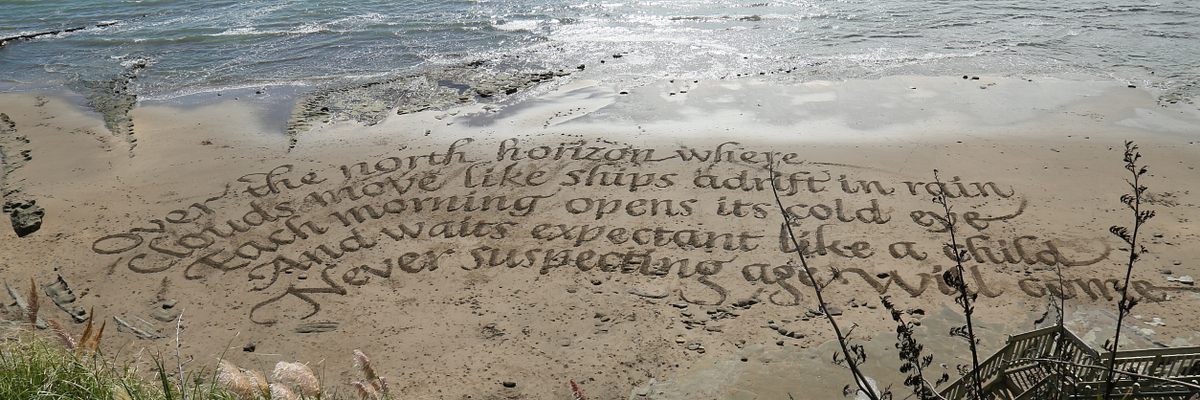 Over the north horizon where
Clouds move like ships adrift in rain
Each morning opens its cold eye
And waits expectant like a child
Never suspecting age will come